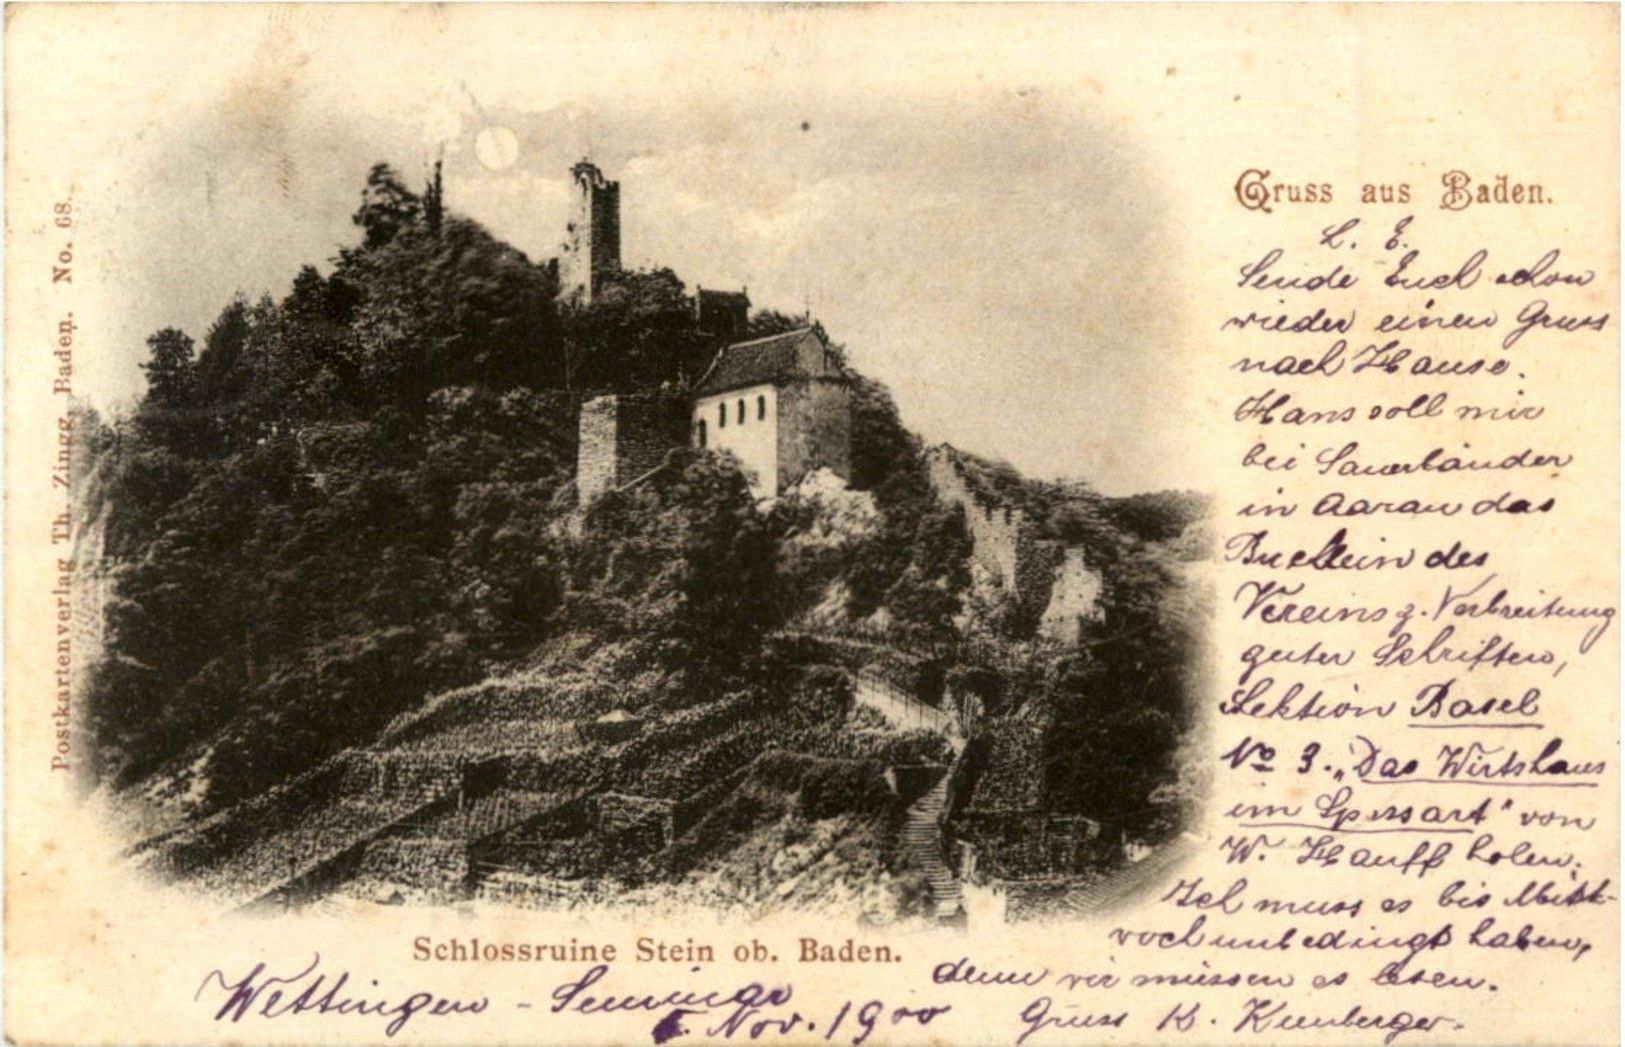 Postkartenverlag Th. Zingg, Baden. No. 68.
Gruss aus Baden.
L. E.
Sende Euch schon
wieder einen Gruss
nach Hause.
Hans soll mir
bei Sauerländer
in Aarau das
Buechlein des
Vereins z. Verbreitung
guter Schriften,
Sektion Basel
No 3. „Das Wirtshaus
im Spessart" von
W. Hauff holen.
Ich muss es bis Mitt-
woch unbedingt haben,
denn wir müssen es lesen.
Gruss K.
Schlossruine Stein ob. Baden.
Wettingen - Seminar
Nov. 1900